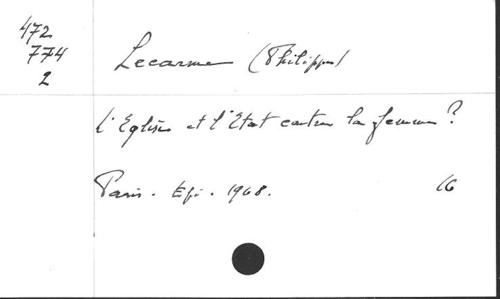 472
774
2
Lecarme (Philippe)
L'Eglise et l'Etat contre la femme ?
Paris. Epi. 1968.
16